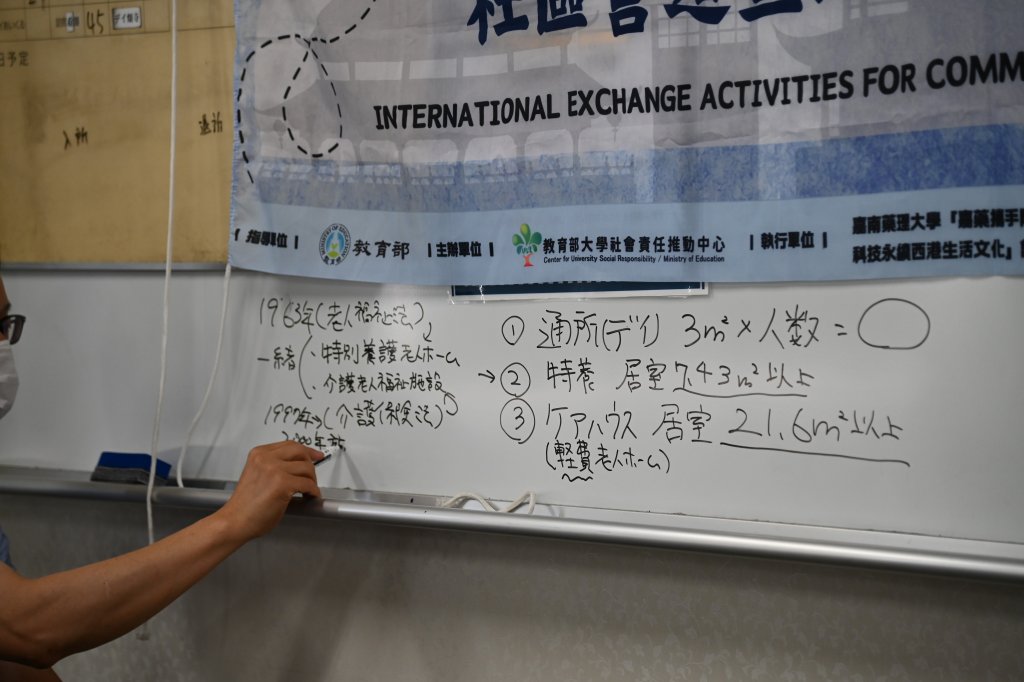 45 デイ類寺
日予定
入所 退所
INTERNATIONAL EXCHANGE ACTIVITIES FOR COMM
| 指導單位 | MINISTRY OF EDUCATION 教育部 | 主辦單位 | 教育部大學社會責任推動中心 | 執行單位 | 嘉南藥理大學『嘉藥攜手
Center for University Social Responsibility / Ministry of Education 科技永續西港生活文化』
1963年(老人福祉法)
一緒(・特別養護老人ホーム
・介護老人福祉施設
1997年→(介護保険法)
2000年
① 通所(デイ) 3m²×人数=○
→② 特養 居室7.43m²以上
③ ケアハウス 居室 21.6m²以上
(軽費老人ホーム)